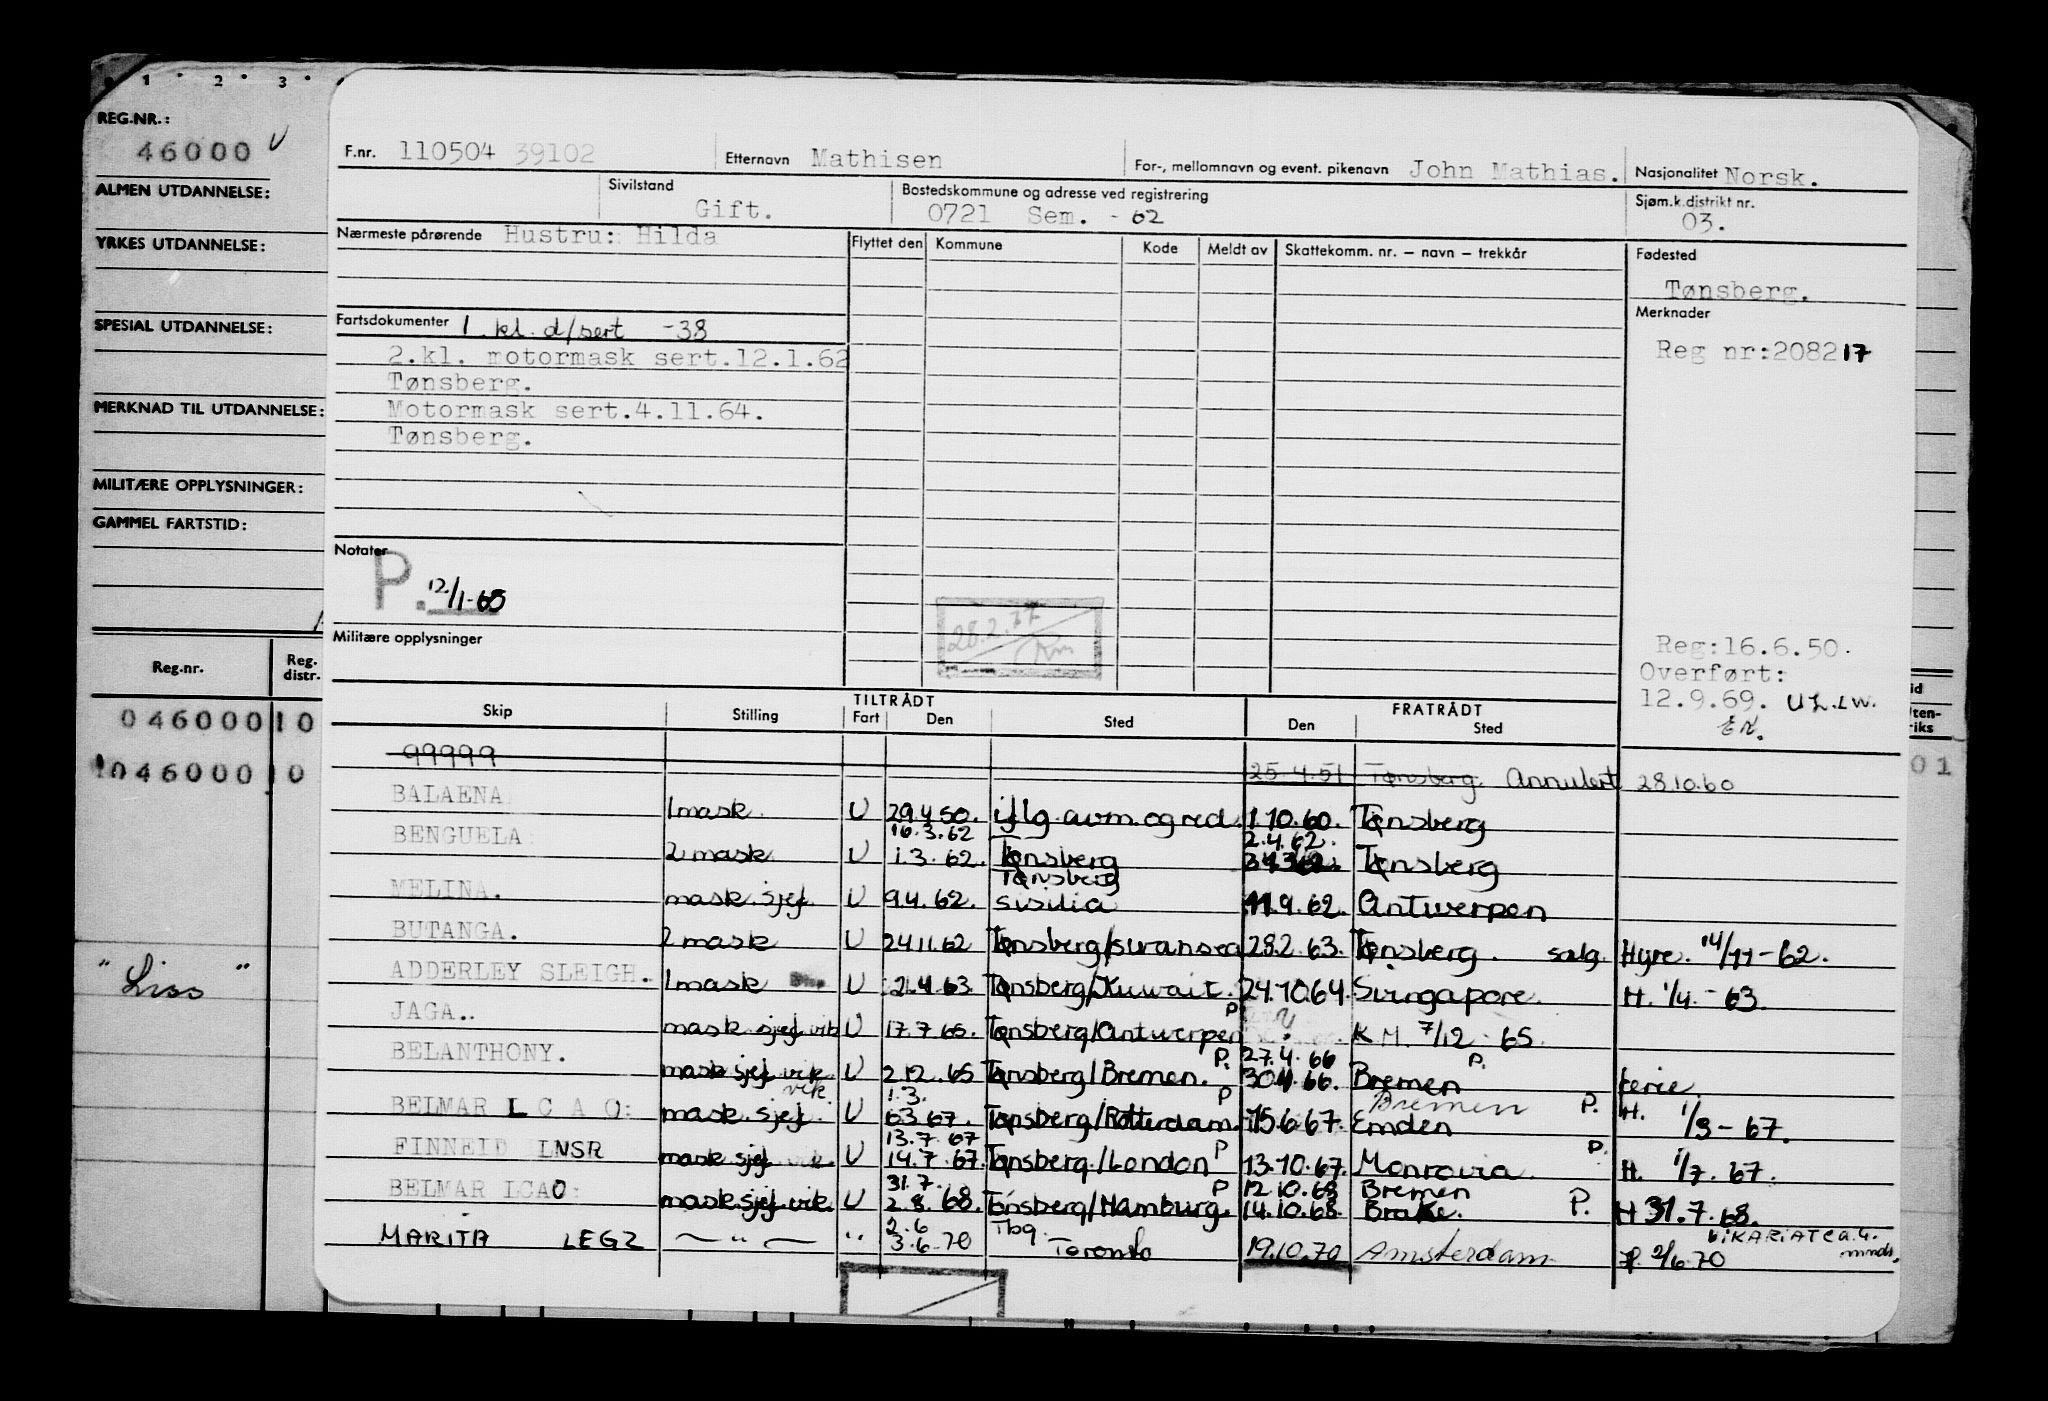 1 2 3
REG.NR.:
46000 V
ALMEN UTDANNELSE:
YRKES UTDANNELSE:
SPESIAL UTDANNELSE:
MERKNAD TIL UTDANNELSE:
MILITÆRE OPPLYSNINGER:
GAMMEL FARTSTID:
Reg.nr. Reg. distr.
046000 10
046000 10
" Liss "
F.nr. 110504 39102 Etternavn Mathisen For-, mellomnavn og event. pikenavn John Mathias. Nasjonalitet Norsk.
Sivilstand Gift. Bostedskommune og adresse ved registrering 0721 Sem. - 62 Sjøm.k.distrikt nr. 03.
Nærmeste pårørende Hustru: Hilda Flyttet den Kommune Kode Meldt av Skattekomm. nr. – navn – trekkår Fødested
Tønsberg.
Fartsdokumenter 1 kl. d/sert -38 Merknader
2.kl. motormask sert.12.1.62 Reg nr:208217
Tønsberg.
Motormask sert.4.11.64.
Tønsberg.
Notater
P. 12/1-65
28.2.77
Militære opplysninger
Reg:16.6.50.
Overført:
12.9.69.
Skip Stilling TILTRÅDT Fart Den Sted FRATRÅDT Den Sted
99999 25.4.51 Tønsberg. Annulert 28.10.60
BALAENA 1 mask. U 29.4.50. iflg. avm. og red. 1.10.60. Tønsberg
16.3.62 2.4.62.
BENGUELA 2 mask U 1.3.62. Tønsberg Tønsberg
Tønsberg
MELINA. mask. sjef. U 9.4.62. sisilia 11.9.62. Antwerpen
BUTANGA. 2 mask U 24.11.62 28.2.63. Tønsberg. salg. Hyre. 14/11-62.
ADDERLEY SLEIGH. 1 mask U 2.4.63 Tønsberg/Kuwait. 24.10.64. Singapore. H. 1/4.-63.
P
JAGA. mask sjef vik U 17.7.65. Tønsberg/Antwerpen ? K M. 7/12-65.
P. 27.4.66 P.
BELANTHONY. mask sjef vik U 2.12.65 Tønsberg/Bremen. 30.4.66. Bremen ferie
vik. 1.3. P Bremen P.
BELMAR LCAO: mask. sjef. U 6.3.67. Tønsberg/Rotterdam. 15.6.67. Emden H. 1/3-67.
13.7.67 P P.
FINNEID LNSR mask. sjef vik. U 14.7.67. Tønsberg/London 13.10.67. Monrovia H. 1/7.67.
31.7. P 12.10.68 Bremen
BELMAR LCAO: mask.sjef.vik. U 2.8.68. Tønsberg/Hamburg. 14.10.68. Brake. P. H 31.7.68.
2.6 Tbg. VIKARIAT ca. 4. mnd.
MARITA LEGZ — " — " 3.6.70 Toronto 19.10.70 Amsterdam P. 2/6.70